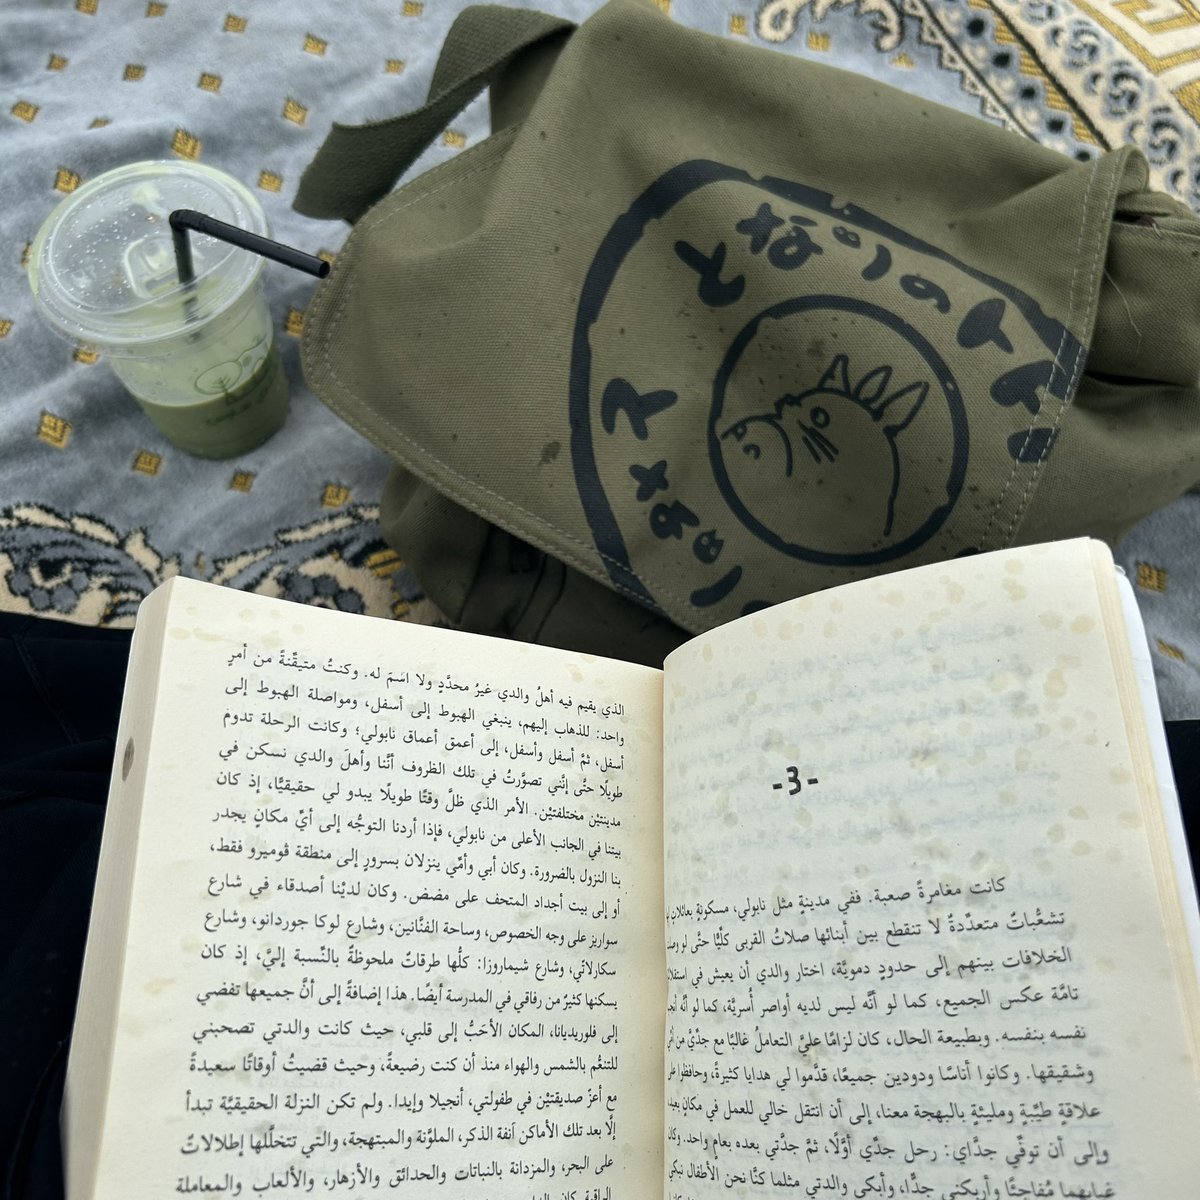 となりのトトロ
-3-
كانت مغامرةً صعبة. ففي مدينةٍ مثل نابولي، مسكونةٍ بعائلاتٍ
تشعُّباتٌ متعدّدةٌ لا تنقطع بين أبنائها صلاتُ القربى كلّيًّا حتّى لو
الخلافات بينهم إلى حدودٍ دمويّة، اختار والدي أن يعيش في
تامّة عكس الجميع، كما لو أنّه ليس لديه أواصر أُسريّة، كما لو أنّه
نفسه بنفسه. وبطبيعة الحال، كان لزامًا عليَّ التعاملُ غالبًا مع جدَّيَّ من
وشقيقها. وكانوا أناسًا ودودين جميعًا، قدّموا لي هدايا كثيرةً، وحافظوا على
علاقةٍ طيّبةٍ ومليئةٍ بالبهجة معنا، إلى أن انتقل خالي للعمل في مكانٍ
وإلى أن توفّي جدّاي: رحل جدّي أوّلًا، ثمَّ جدّتي بعده بعامٍ واحد. وكان
غيابهما مُفاجئًا وأربكني جدًّا، وأبكى والدتي مثلما كنّا نحن الأطفال نبكي
الذي يقيم فيه أهلُ والدي غيرُ محدَّدٍ ولا اسَمَ له. وكنتُ متيقّنةً من أمرٍ
واحد: للذهاب إليهم، ينبغي الهبوط إلى أسفل، ومواصلة الهبوط إلى
أسفل، ثمَّ أسفل وأسفل، إلى أعمق أعماق نابولي؛ وكانت الرحلة تدوم
طويلًا حتّى إنَّني تصوَّرتُ في تلك الظروف أنَّنا وأهلَ والدي نسكن في
مدينتيْن مختلفتيْن. الأمر الذي ظلَّ وقتًا طويلًا يبدو لي حقيقيًّا، إذ كان
بيتنا في الجانب الأعلى من نابولي، فإذا أردنا التوجُّه إلى أيِّ مكانٍ يجدر
بنا النزول بالضرورة. وكان أبي وأمّي ينزلان بسرورٍ إلى منطقة ڤوميرو فقط،
أو إلى بيت أجداد المتحف على مضض. وكان لديْنا أصدقاء في شارع
سواريز على وجه الخصوص، وساحة الفنَّانين، وشارع لوكا جوردانو، وشارع
سكارلاتّي، وشارع شيماروزا: كلُّها طرقاتٌ ملحوظةٌ بالنِّسبة إليَّ، إذ كان
يسكنها كثيرٌ من رفاقي في المدرسة أيضًا. هذا إضافةً إلى أنَّ جميعها تفضي
إلى فلوريديانا، المكان الأحَبُّ إلى قلبي، حيث كانت والدتي تصحبني
للتنعُّم بالشمس والهواء منذ أن كنت رضيعةً، وحيث قضيتُ أوقاتًا سعيدةً
مع أعزّ صديقتيْن في طفولتي، أنجيلا وإيدا. ولم تكن النزلة الحقيقيّة تبدأ
إلَّا بعد تلك الأماكن آنفة الذكر، الملوَّنة والمبتهجة، والتي تتخلَّلها إطلالاتٌ
على البحر، والمزدانة بالنباتات والحدائق والأزهار، والألعاب والمعاملة
الراقية